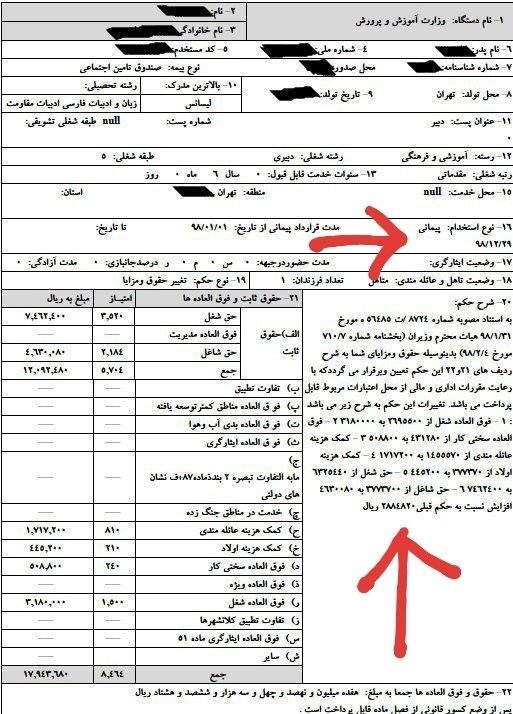 ۱- نام دستگاه: وزارت آموزش و پرورش
۲- نام:
۳- نام خانوادگی:
۶- نام پدر:
۴- شماره ملی:
۵- کد مستخدم:
۷- شماره شناسنامه:
محل صدور:
نوع بیمه: صندوق تامین اجتماعی
۸- محل تولد: تهران
۹- تاریخ تولد:
۱۰- بالاترین مدرک:
لیسانس
رشته تحصیلی:
زبان و ادبیات فارسی ادبیات مقاومت
۱۱- عنوان پست: دبیر
شماره پست: null
طبقه شغلی تشویقی:
۰
۱۲- رسته: آموزشی و فرهنگی
رشته شغلی: دبیری
طبقه شغلی: ۵
رتبه شغلی: مقدماتی
۱۳- سنوات خدمت قابل قبول: ۰ سال ۶ ماه ۰ روز
۱۵- محل خدمت: null
منطقه: تهران
استان:
۱۶- نوع استخدام: پیمانی
مدت قرارداد پیمانی از تاریخ: ۹۸/۰۱/۰۱
تا تاریخ:
۹۸/۱۲/۲۹
۱۷- وضعیت ایثارگری:
مدت حضوردرجبهه: ۰ س ۰ م ۰ ر
درصدجانبازی: ۰
مدت آزادگی: ۰
۱۸- وضعیت تاهل و عائله مندی: متاهل
تعداد فرزندان: ۱
۱۹- نوع حکم: تغییر حقوق ومزایا
۲۰- شرح حکم:
به استناد مصوبه شماره ۸۷۲۴ /ت ۵۶۴۸۵ ه مورخ
۹۸/۱/۳۱ هیات محترم وزیران (بخشنامه شماره ۷۱۰/۷
مورخ ۹۸/۲/۴) بدینوسیله حقوق ومزایای شما به شرح
ردیف های ۲۱و۲۲ این حکم تعیین وبرقرار می گرددکه با
رعایت مقررات اداری و مالی از محل اعتبارات مربوط قابل
پرداخت می باشد. تغییرات این حکم به شرح زیر می باشد
: ۱ - فوق العاده شغل از ۲۶۹۵۵۰۰ به ۳۱۸۰۰۰۰ ۲ - فوق
العاده سختی کار از ۴۳۱۲۸۰ به ۵۰۸۸۰۰ ۳ - کمک هزینه
عائله مندی از ۱۴۵۵۵۷۰ به ۱۷۱۷۲۰۰ ۴ - کمک هزینه
اولاد از ۳۷۷۳۷۰ به ۴۴۵۲۰۰ ۵ - حق شغل از ۶۳۲۵۴۴۰
به ۷۴۶۲۴۰۰ ۶ - حق شاغل از ۳۷۷۳۷۰۰ به ۴۶۳۰۰۸۰
افزایش نسبت به حکم قبلی ۲۸۸۴۸۲۰ ریال
۲۱- حقوق ثابت و فوق العاده ها
امتیـاز
مبلغ به ریال
الف)حقوق
ثابت
حق شغل
۳,۵۲۰
۷,۴۶۲,۴۰۰
فوق العاده مدیریت
حق شاغل
۲,۱۸۴
۴,۶۳۰,۰۸۰
جمع
۵,۷۰۴
۱۲,۰۹۲,۴۸۰
ب) تفاوت تطبیق
پ) فوق العاده مناطق کمترتوسعه یافته
ت) فوق العاده بدی آب وهوا
ث) فوق العاده ایثارگری
ج)
مابه التفاوت تبصره ۲ بندذماده۸۷ف نشان
های دولتی
چ) خدمت در مناطق جنگ زده
ح) کمک هزینه عائله مندی
۸۱۰
۱,۷۱۷,۲۰۰
خ) کمک هزینه اولاد
۲۱۰
۴۴۵,۲۰۰
د) فوق العاده سختی کار
۲۴۰
۵۰۸,۸۰۰
ذ) فوق العاده ویژه
ر) فوق العاده شغل
۱,۵۰۰
۳,۱۸۰,۰۰۰
ز) تفاوت تطبیق کلاتشهرها
س) فوق العاده ایثارگری ماده ۵۱
ش) سایر
جمع
۸,۴۶۴
۱۷,۹۴۳,۶۸۰
۲۲- حقوق و فوق العاده ها جمعا به مبلغ: هفده میلیون و نهصد و چهل و سه هزار و ششصد و هشتاد ریال
پس از وضع کسور قانونی از فصل ماده قابل پرداخت است .